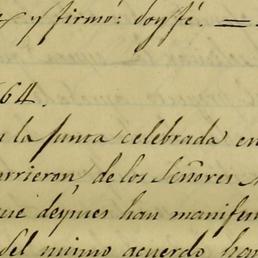 y firmó: doy fé. =
64.
la Junta celebrada en
rrieron, de los Señores
que depues han manifes
del mismo acuerdo, han